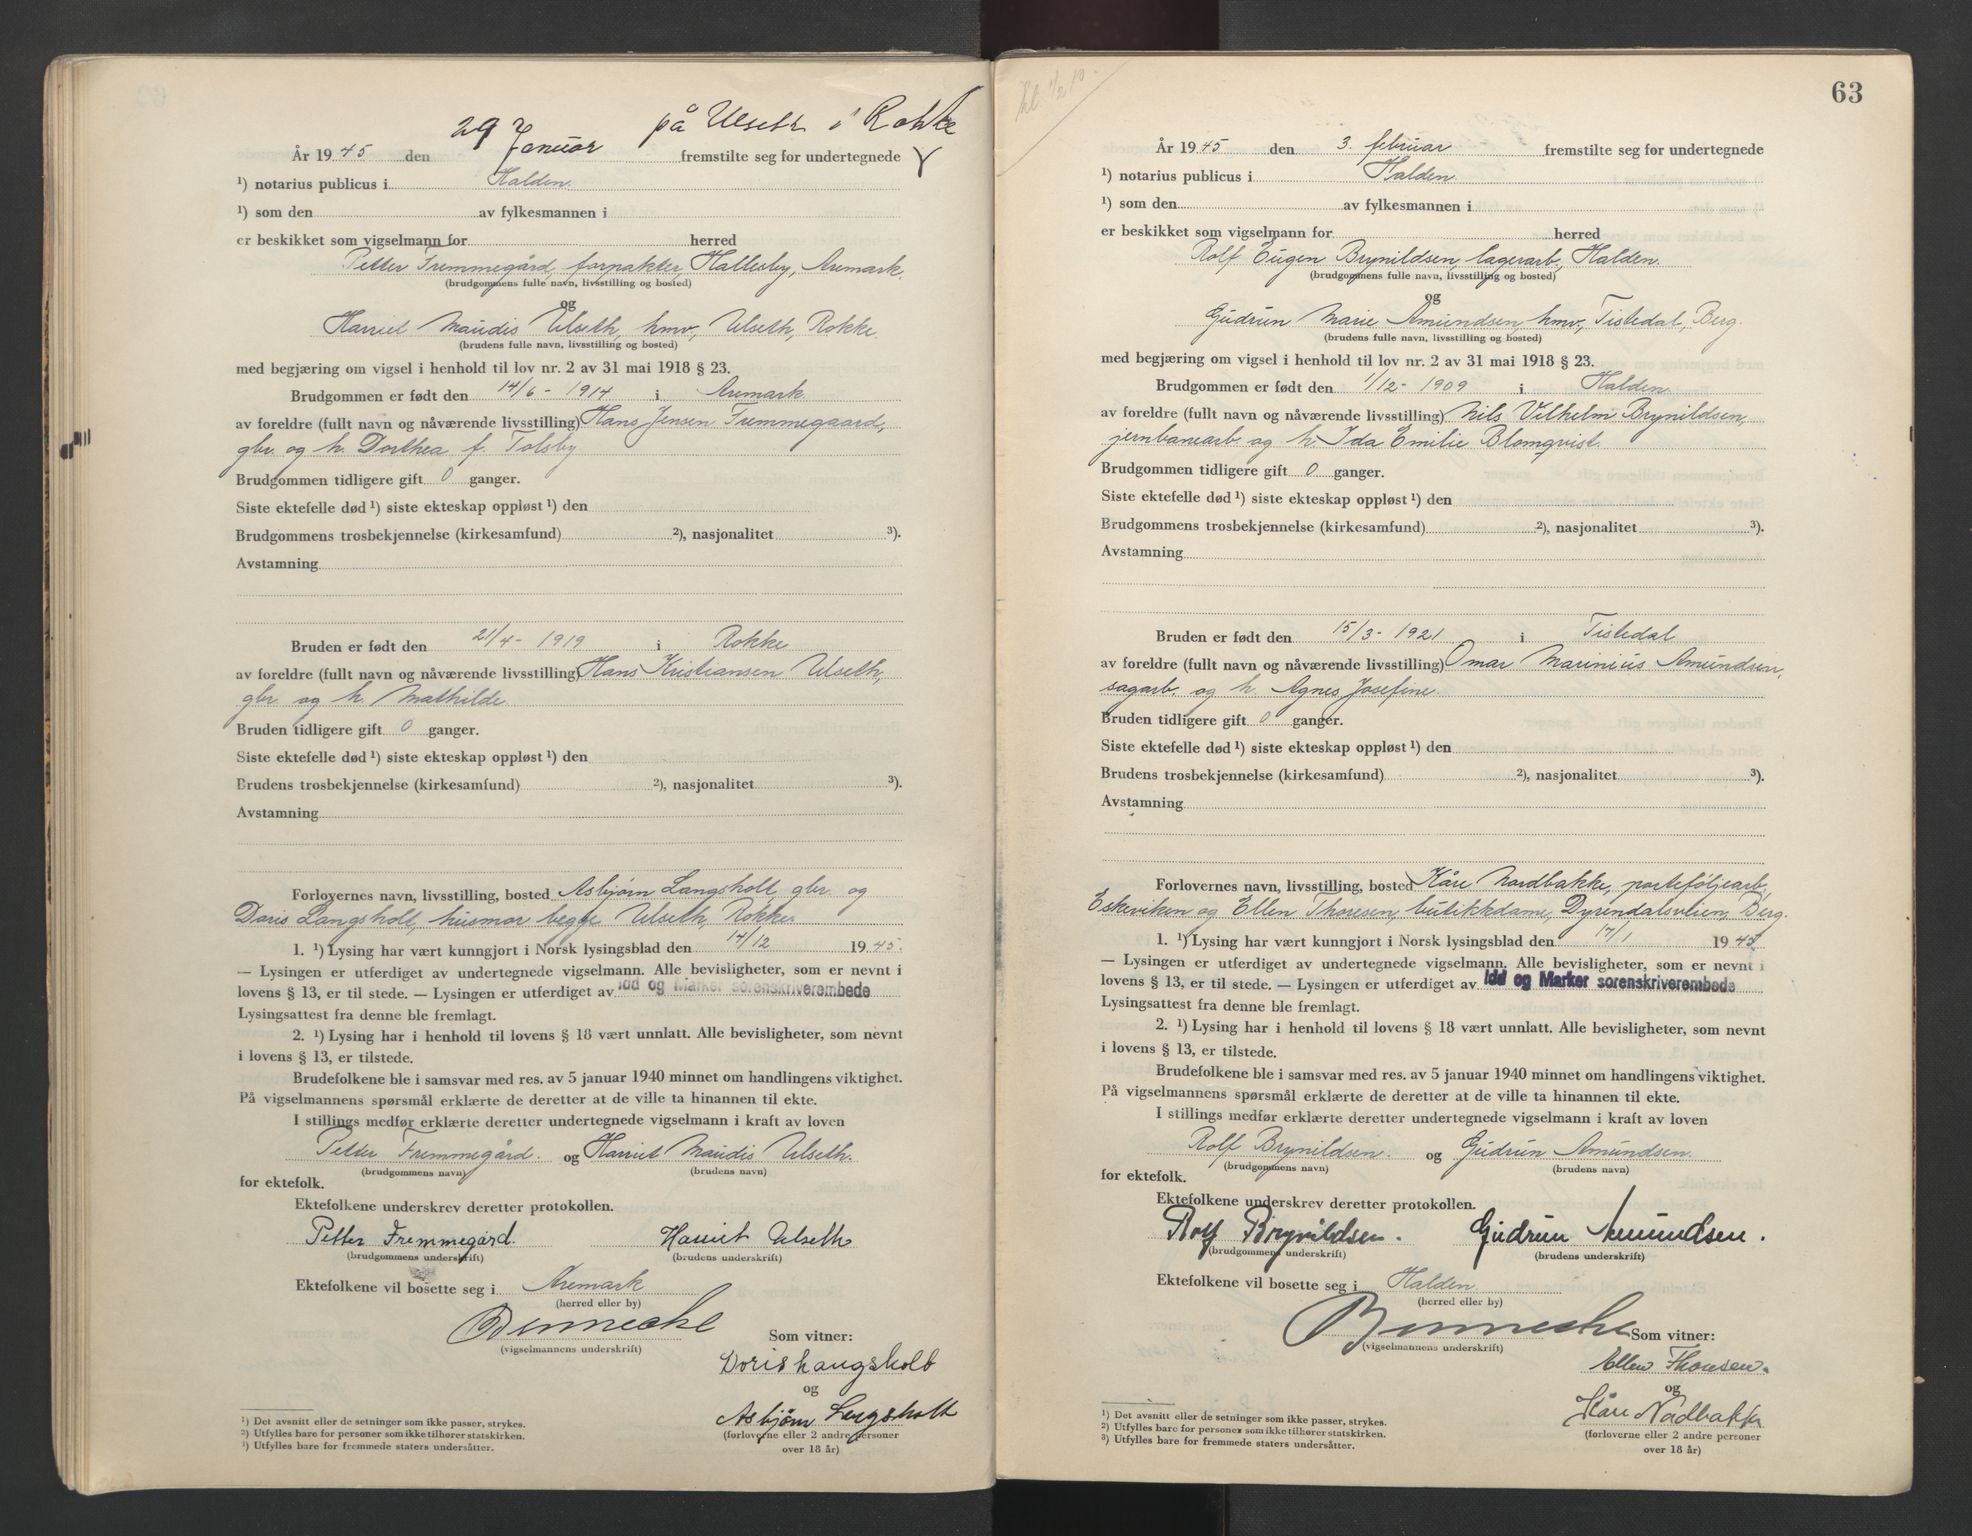 på Ulseth i Rokke
År 1945 den 29 Januar fremstilte seg for undertegnede
¹) notarius publicus i Halden
¹) som den av fylkesmannen i
er beskikket som vigselmann for herred
Petter Fremmegård, forpakter, Hallesby, Aremark.
(brudgommens fulle navn, livsstilling og bosted)
og
Harriet Maudis Ulseth, hmv, Ulseth, Rokke.
(brudens fulle navn, livsstilling og bosted)
med begjæring om vigsel i henhold til lov nr. 2 av 31 mai 1918 § 23.
Brudgommen er født den 14/6 - 1914 i Aremark
av foreldre (fullt navn og nåværende livsstilling) Hans Jensen Fremmegaard,
gbr. og h. Dorthea f. Tolsby
Brudgommen tidligere gift 0 ganger.
Siste ektefelle død ¹) siste ekteskap oppløst ¹) den
Brudgommens trosbekjennelse (kirkesamfund) ²), nasjonalitet ³).
Avstamning
Bruden er født den 21/4 - 1919 i Rokke
av foreldre (fullt navn og nåværende livsstilling) Hans Kristiansen Ulseth,
gbr. og h. Mathilde
Bruden tidligere gift 0 ganger.
Siste ektefelle død ¹) siste ekteskap oppløst ¹) den
Brudens trosbekjennelse (kirkesamfund) ²), nasjonalitet ³).
Avstamning
Forlovernes navn, livsstilling, bosted Asbjørn Langsholt, gbr. og
Doris Langsholt, husmor begge Ulseth, Rokke
1. ¹) Lysing har vært kunngjort i Norsk lysingsblad den 14/12 1945.
— Lysingen er utferdiget av undertegnede vigselmann. Alle bevisligheter, som er nevnt i
lovens § 13, er til stede. — Lysingen er utferdiget av Idd og Marker sorenskriverembede
Lysingsattest fra denne ble fremlagt.
2. ¹) Lysing har i henhold til lovens § 18 vært unnlatt. Alle bevisligheter, som nevnt
i lovens § 13, er tilstede.
Brudefolkene ble i samsvar med res. av 5 januar 1940 minnet om handlingens viktighet.
På vigselmannens spørsmål erklærte de deretter at de ville ta hinannen til ekte.
I stillings medfør erklærte deretter undertegnede vigselmann i kraft av loven
Petter Fremmegård. og Harriet Maudis Ulseth.
(brudgommens navn) (brudens navn)
for ektefolk.
Ektefolkene underskrev deretter protokollen.
Petter Fremmegård. Harriet Ulseth
(brudgommens underskrift) (brudens underskrift)
Ektefolkene vil bosette seg i Aremark
(herred eller by)
Bennecke
(vigselmannens underskrift)
Som vitner:
Doris Langsholt
og
Asbjørn Langsholt
(forloverne eller 2 andre personer
over 18 år)
¹) Det avsnitt eller de setninger som ikke passer, strykes.
²) Utfylles bare for personer som ikke tilhører statskirken.
³) Utfylles bare for fremmede staters undersåtter.
63
År 1945 den 3. februar fremstilte seg for undertegnede
¹) notarius publicus i Halden
¹) som den av fylkesmannen i
er beskikket som vigselmann for herred
Rolf Eugen Brynildsen, lagerarb, Halden.
(brudgommens fulle navn, livsstilling og bosted)
og
Gudrun Marie Amundsen, hmv, Tistedal, Berg.
(brudens fulle navn, livsstilling og bosted)
med begjæring om vigsel i henhold til lov nr. 2 av 31 mai 1918 § 23.
Brudgommen er født den 1/12 - 1909 i Halden
av foreldre (fullt navn og nåværende livsstilling) Nils Vilhelm Brynildsen,
jernbanearb og h. Ida Emilie Blomqvist.
Brudgommen tidligere gift 0 ganger.
Siste ektefelle død ¹) siste ekteskap oppløst ¹) den
Brudgommens trosbekjennelse (kirkesamfund) ²), nasjonalitet ³).
Avstamning
Bruden er født den 15/3 - 1921 i Tistedal
av foreldre (fullt navn og nåværende livsstilling) Omar Marinius Amundsen,
sagarb. og h. Agnes Josefine.
Bruden tidligere gift 0 ganger.
Siste ektefelle død ¹) siste ekteskap oppløst ¹) den
Brudens trosbekjennelse (kirkesamfund) ²), nasjonalitet ³).
Avstamning
Forlovernes navn, livsstilling, bosted Kåre Nordbakke, porteføljearb,
Eskeviken og Ellen Thoresen, butikkdame, Dyrendalsveien, Berg.
1. ¹) Lysing har vært kunngjort i Norsk lysingsblad den 17/1 1945
— Lysingen er utferdiget av undertegnede vigselmann. Alle bevisligheter, som er nevnt i
lovens § 13, er til stede. — Lysingen er utferdiget av Idd og Marker sorenskriverembede
Lysingsattest fra denne ble fremlagt.
2. ¹) Lysing har i henhold til lovens § 18 vært unnlatt. Alle bevisligheter, som nevnt
i lovens § 13, er tilstede.
Brudefolkene ble i samsvar med res. av 5 januar 1940 minnet om handlingens viktighet.
På vigselmannens spørsmål erklærte de deretter at de ville ta hinannen til ekte.
I stillings medfør erklærte deretter undertegnede vigselmann i kraft av loven
Rolf Brynildsen. og Gudrun Amundsen.
(brudgommens navn) (brudens navn)
for ektefolk.
Ektefolkene underskrev deretter protokollen.
Rolf Brynildsen. Gudrun Amundsen.
(brudgommens underskrift) (brudens underskrift)
Ektefolkene vil bosette seg i Halden
(herred eller by)
Bennecke
(vigselmannens underskrift)
Som vitner:
Ellen Thoresen.
og
Kåre Nordbakke
(forloverne eller 2 andre personer
over 18 år)
¹) Det avsnitt eller de setninger som ikke passer, strykes.
²) Utfylles bare for personer som ikke tilhører statskirken.
³) Utfylles bare for fremmede staters undersåtter.